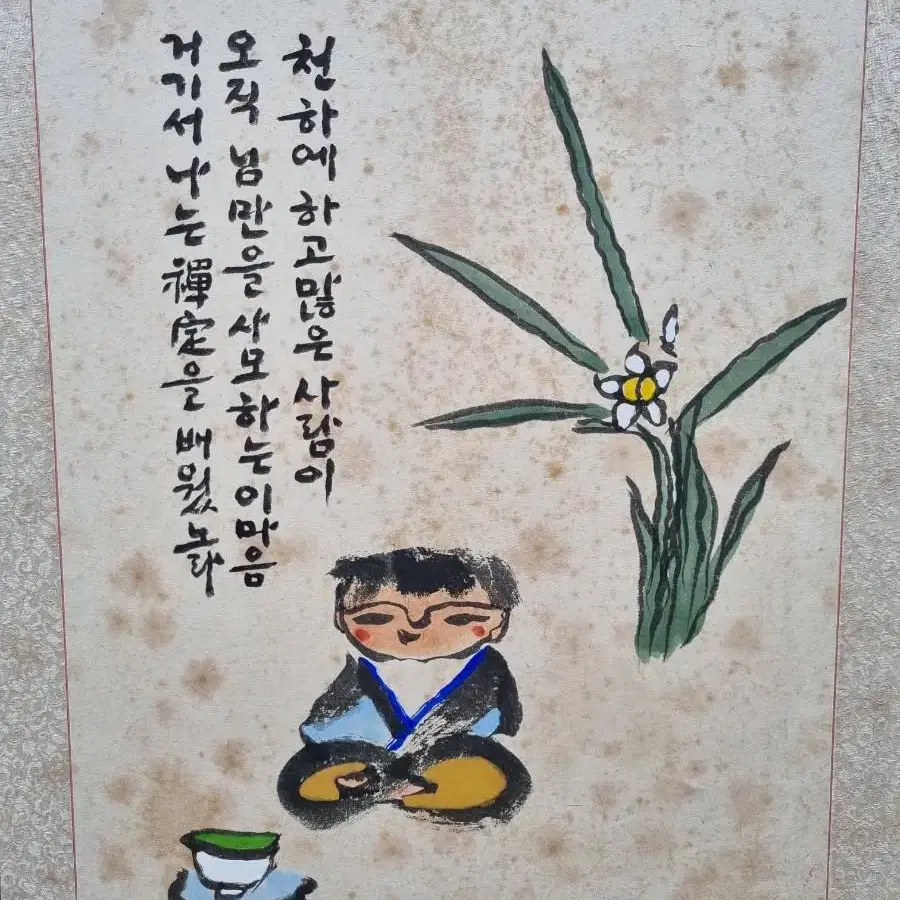 천하에 하고많은 사람이
오직 님만을 사모하는 이 마음
거기서 나는 禪定을 배웠노라